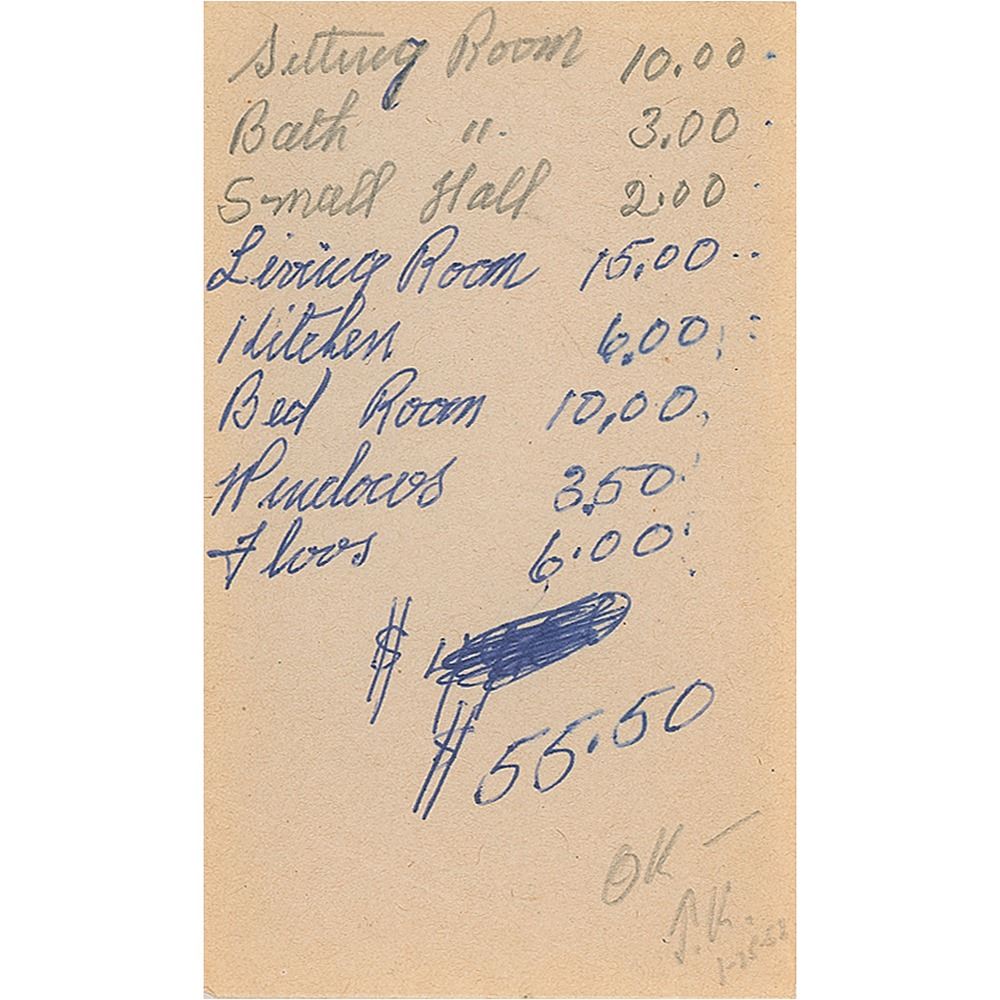 Sitting Room 10.00
Bath " 3.00
Small Hall 2.00
Living Room 15.00
Kitchen 6.00
Bed Room 10.00
Windows 3.50
Floos 6.00
$
$ 55.50
OK —
J.K.